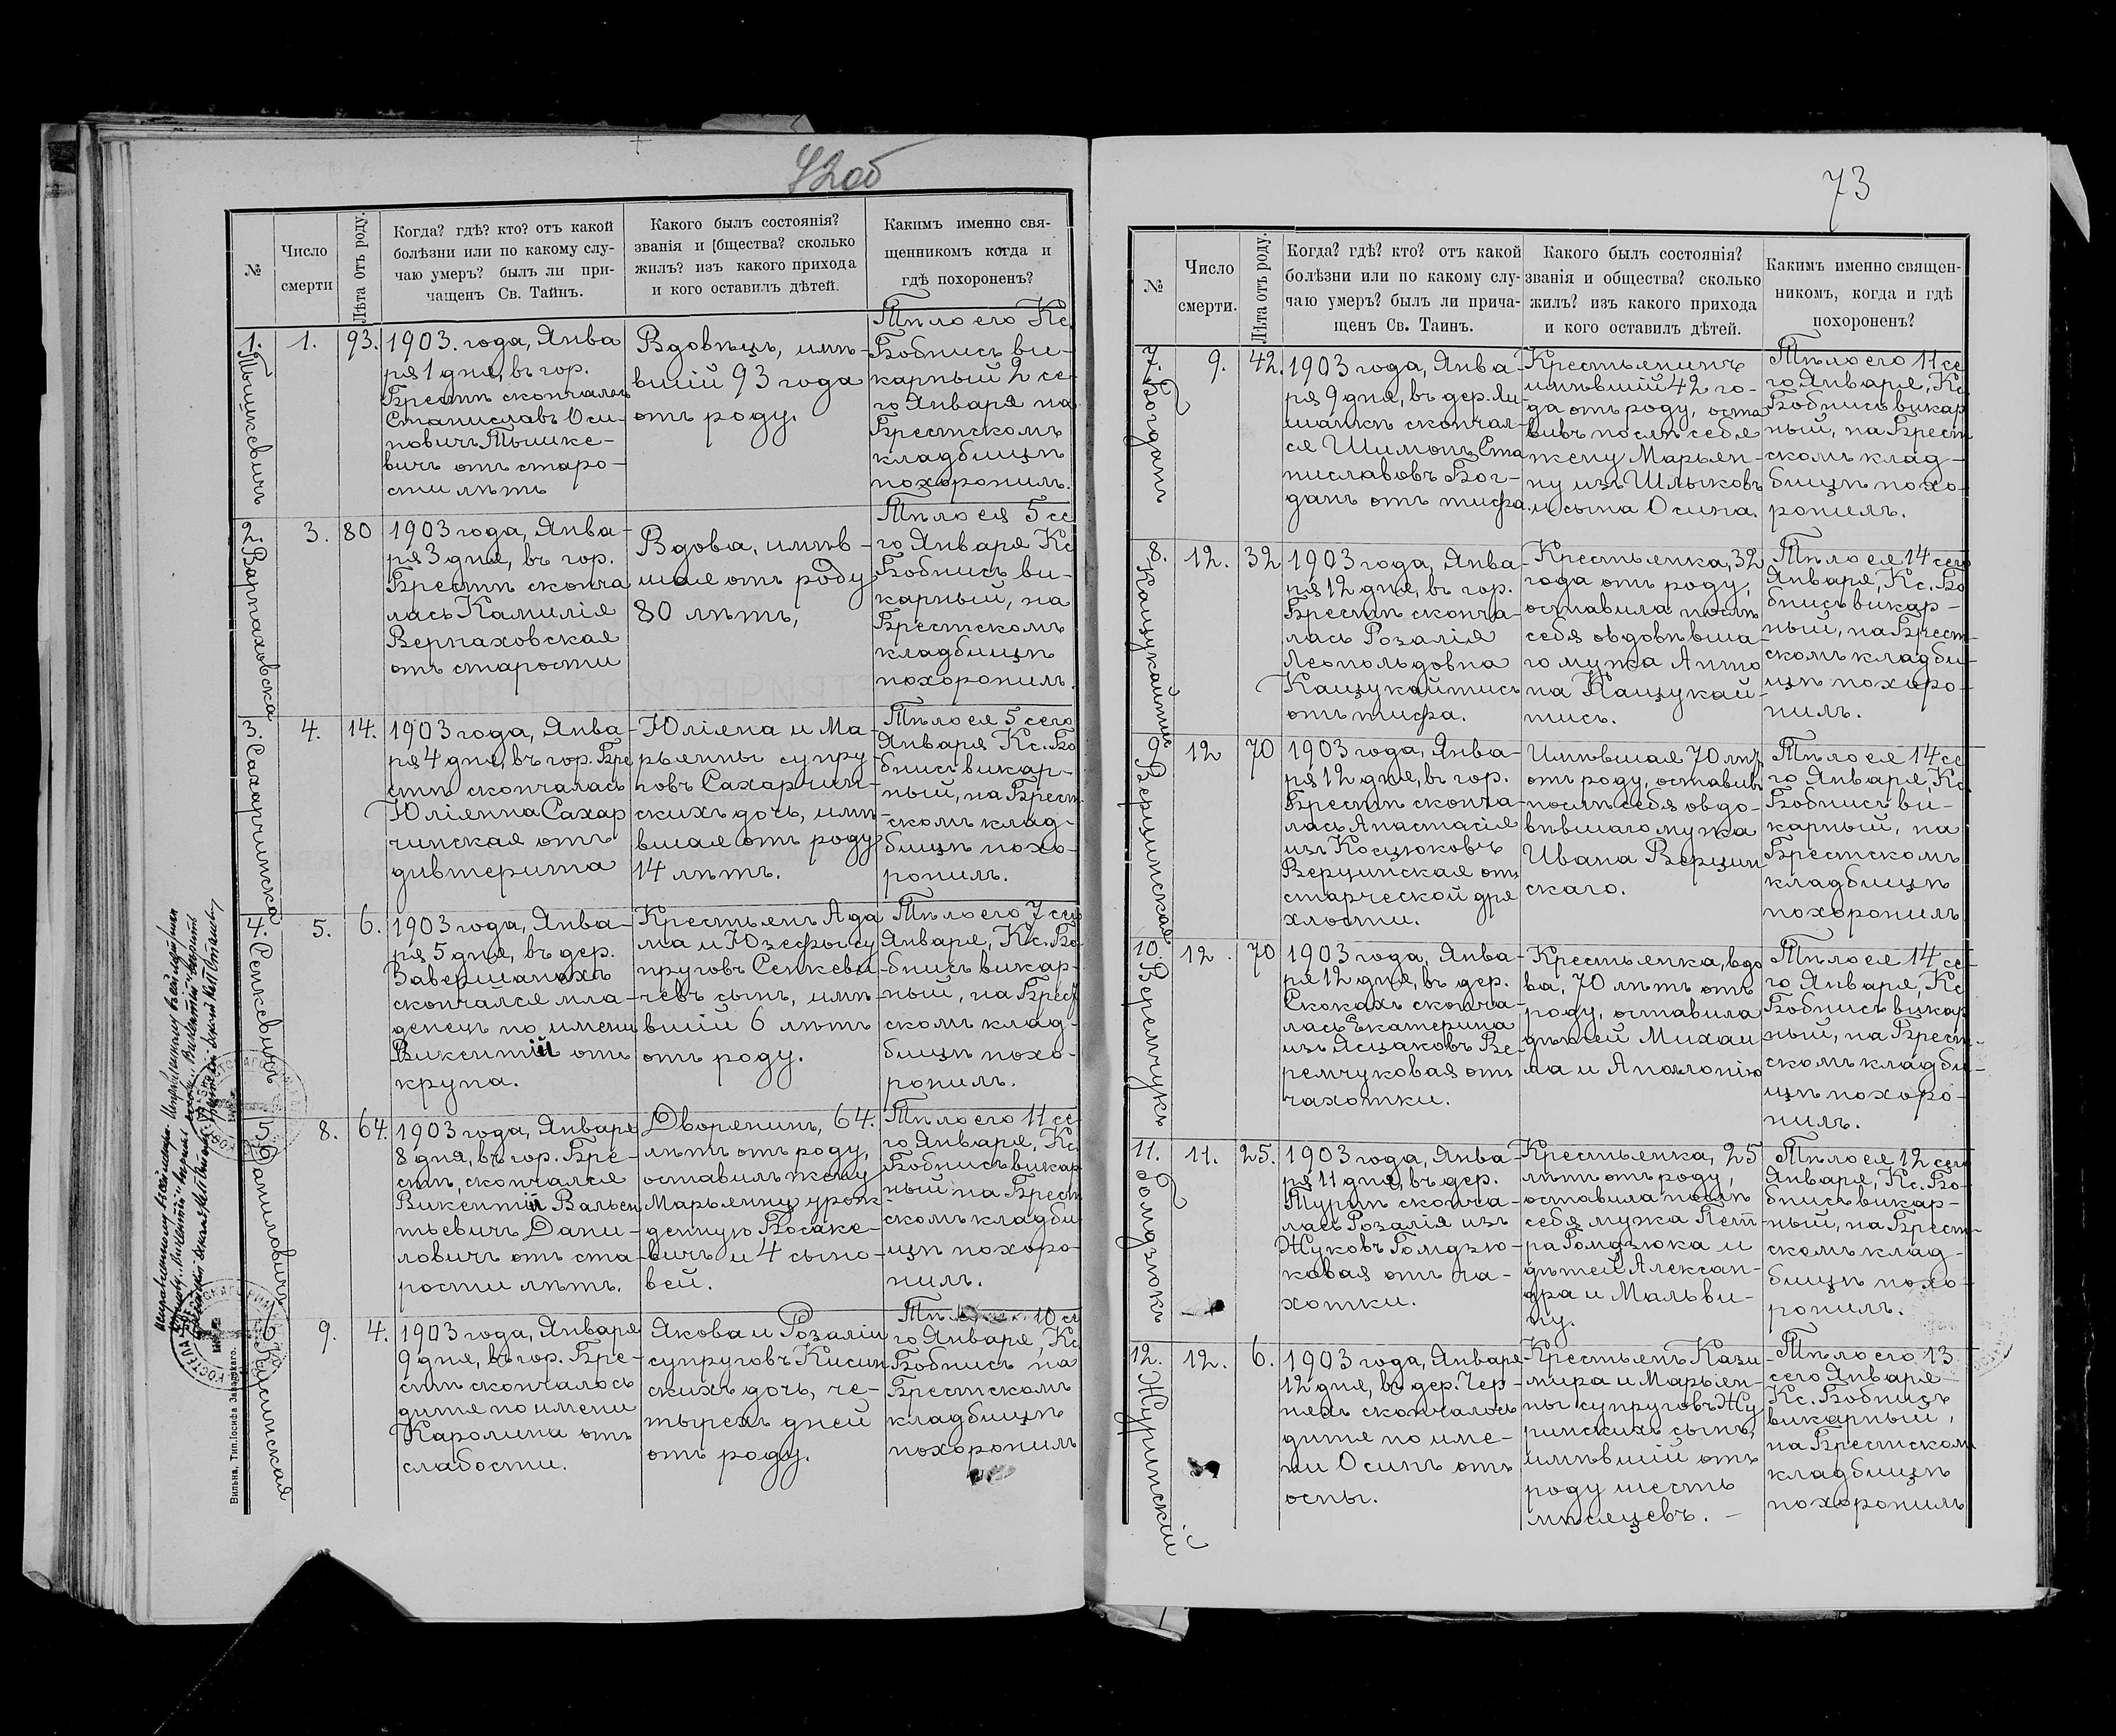 72об
№
Число
смерти
Лѣта отъ роду.
Когда? гдѣ? кто? отъ какой
болѣзни или по какому слу-
чаю умеръ? былъ ли при-
чащенъ Св. Тайнъ.
Какого былъ состоянія?
званія и общества? сколько
жилъ? изъ какого прихода
и кого оставилъ дѣтей.
Каким именно свя-
щенникомъ когда и
гдѣ похороненъ?
1.
Тышкевичъ
1.
93.
1903. года, Янва
ря 1 дня, въ гор.
Брестѣ скончался
Станиславъ Оси-
повичъ Тышке-
вичъ отъ старо-
сти лѣтъ
Вдовецъ, имѣ-
вшій 93 года
отъ роду.
Тѣло его Кс.
Бобнисъ ви-
карный 2 се-
го Января на
Брестскомъ
кладбищѣ
похоронилъ.
2.
Варпаховска
3.
80
1903 года, Янва-
ря 3 дня, въ гор.
Брестѣ сконча
лась Камилія
Верпаховская
отъ старости
Вдова, имѣв-
шая отъ роду
80 лѣтъ,
Тѣло ея 5 се
го Января Кс
Бобнисъ ви-
карный, на
Брестскомъ
кладбищѣ
похоронилъ.
3.
Сахарчинска
4.
14.
1903 года, Янва-
ря 4 дня, въ гор. Бре
стѣ скончалась
Юліянна Сахар
чинская отъ
дивтерита
Юліяна и Ма-
рьянны супру
говъ Сахарчин-
скихъ дочь, имѣ
вшая отъ роду
14 лѣтъ.
Тѣло ея 5 сего
Января Кс. Бо
бнисъ викар-
ный, на Брест-
скомъ клад-
бищѣ похо-
ронилъ.
4.
Сенкевичъ
5.
6.
1903 года, Янва-
ря 5 дня, въ дер.
Завершанахъ
скончался мла-
денецъ по имени
Викентій отъ
крупа.
Крестьянъ Ада
ма и Юзефы су
пруговъ Сенкеви-
чевъ сынъ, имѣ-
вшій 6 лѣтъ
отъ роду.
Тѣло его 7 сего
Января, Кс. Бо-
бнисъ викар-
ный, на Брест
скомъ клад-
бищѣ похо-
ронилъ.
5.
Даниловичъ
8.
64.
1903 года, Января
8 дня, въ гор. Бре-
стѣ, скончался
Викентій Вальен
тьевичъ Дани-
ловичъ отъ ста-
рости лѣтъ.
Дворянинъ, 64.
лѣтъ отъ роду,
оставилъ жену
Марьянну урож
денную
и 4 сыно-
вей.
Тѣло его 11 се
го Января, Кс.
Бобнисъ викар
ный на Брест
скомъ кладби
щѣ похоро-
нилъ.
6.
Кисинская
9.
4.
1903 года, Января
9 дня, въ гор. Бре-
стѣ скончалось
дитя по имени
Каролина отъ
слабости.
Якова и Розаліи
супруговъ Кисин
скихъ дочь, че-
тырехъ дней
отъ роду.
10 се
го Января, Кс
Бобнисъ на
Брестскомъ
кладбищѣ
похоронилъ
Вильна, Тип. Іосифа Завадзкаго.
73
№
Число
смерти.
Лѣта отъ роду.
Когда? гдѣ? кто? отъ какой
болѣзни или по какому слу-
чаю умеръ? былъ ли прича-
щенъ Св. Таинъ.
Какого былъ состоянія?
званія и общества? сколько
жилъ? изъ какого прихода
и кого оставилъ дѣтей.
Какимъ именно священ-
никомъ, когда и гдѣ
похороненъ?
7.
Богданъ
9.
42.
1903 года, Янва-
ря 9 дня, въ дер. Ли-
шанкѣ скончал-
ся Шимонъ Ста
ниславовъ Бог-
данъ отъ тифа.
Крестьянинъ
имѣвшій 42 го-
да отъ роду, оста
вивъ послѣ себя
жену Марьян-
ну изъ Шлыковъ
и сына Осипа.
Тѣло его 11 се
го Января, Кс.
Бобнисъ викар
ный, на Брест
скомъ клад-
бищѣ похо-
ронилъ.
8.
Кащукайтис
12.
32
1903 года, Янва-
ря 12 дня, въ гор.
Брестѣ сконча-
лась Розалія
Леопольдовна
Кащукайтисъ
отъ тифа.
Крестьянка, 32
года отъ роду,
оставила послѣ
себя овдовѣвша-
го мужа Анто
на Кащукай-
тисъ.
Тѣло ея 14 сего
Января, Кс. Бо
бнисъ викар-
ный, на Брест-
скомъ кладби-
щѣ похоро-
нилъ.
9.
Верцинская
12
70
1903 года, Янва-
ря 12 дня, въ гор.
Брестѣ сконча-
лась Анастасія
изъ Косцюковъ
Верцинская отъ
старческой дря
хлости.
Имѣвшая 70 лѣт
отъ роду, оставивъ
послѣ себя овдо-
вѣвшаго мужа
Ивана Верцин
скаго.
Тѣло ея 14 се
го Января, Кс.
Бобнисъ ви-
карный, на
Брестскомъ
кладбищѣ
похоронилъ
10.
Веремчукъ
12.
70
1903 года, Янва-
ря 12 дня, въ дер.
Скокахъ сконча-
лась Екатерина
изъ Ясцаковъ Ве-
ремчуковая отъ
чахотки.
Крестьянка, вдо
ва, 70 лѣтъ отъ
роду, оставила
дѣтей Михаи
ла и Аполонію
Тѣло ея 14 се-
го Января, Кс
Бобнисъ викар
ный, на Брест-
скомъ кладби-
щѣ похоро-
нилъ.
11.
Гомдзюкъ
11.
25.
1903 года, Янва-
ря 11 дня, въ дер.
Турнѣ сконча-
лась Розалія изъ
Жуковъ Гомдзю-
ковая отъ ча-
хотки.
Крестьянка, 25
лѣтъ отъ роду,
оставила послѣ
себя мужа Пет
ра Гомдзюка и
дѣтей Алексан-
дра и Мальви-
ну.
Тѣло ея 12 сего
Января, Кс. Бо-
бнисъ викар-
ный, на Брест-
скомъ клад-
бищѣ похо-
ронилъ.
12.
Журинскій
12.
6.
1903 года, Января
12 дня, въ дер. Чер-
няхъ скончалось
дитя по име-
ни Осипъ отъ
оспы.
Крестьянъ Кази
мира и Марьян-
ны супруговъ Жу
ринскихъ сынъ,
имѣвшій отъ
роду шесть
мѣсяцевъ. -
Тѣло его 13
сего Января
Кс. Бобнисъ
викарный,
на Брестскомъ
кладбищѣ
похоронилъ